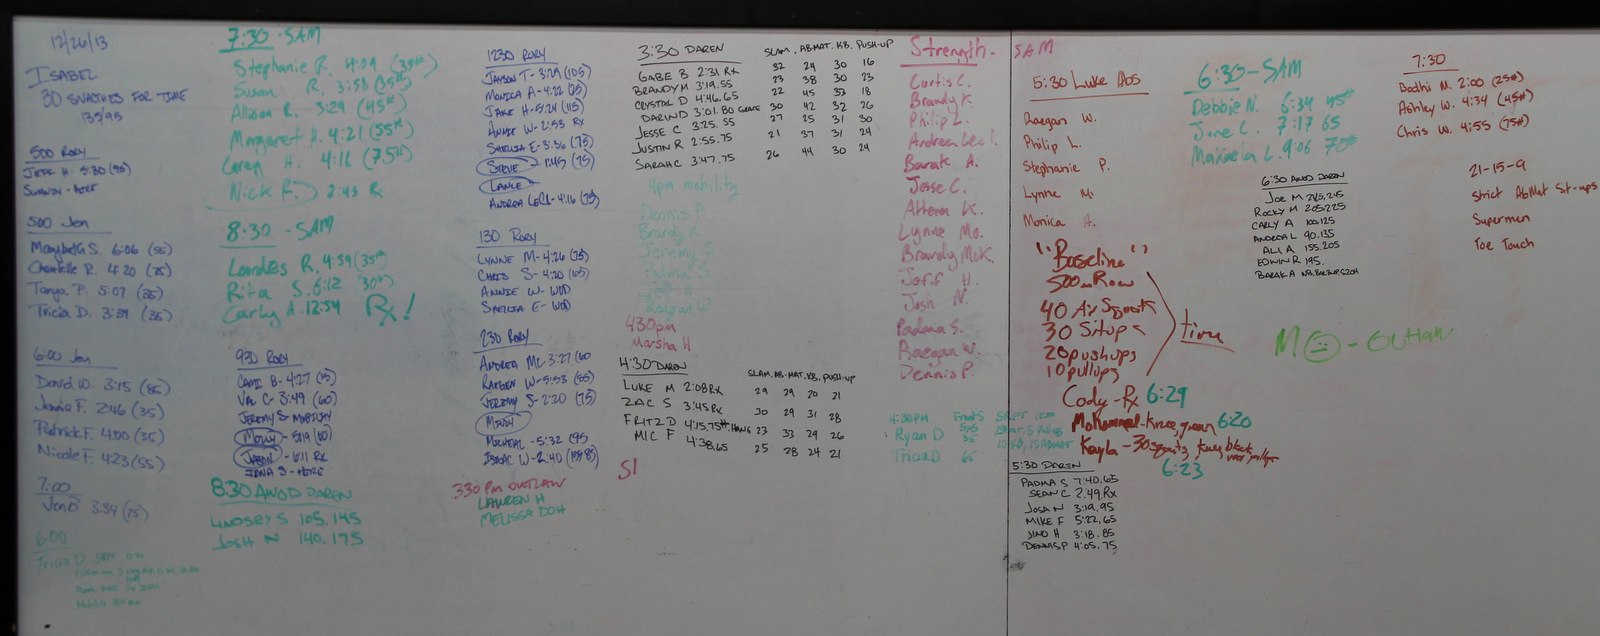 12/26/13
ISABEL
30 SNATCHES FOR TIME
135/95
500 RORY
JEFF H. 5:30 (95)
500 Jen
Marybeth S. 6:06 (55)
Chantelle R. 4:20 (75)
Tanya P. 5:07 (35)
Tricia D. 3:39 (35)
6:00 Jen
David W. 3:15 (85)
Jannie F. 2:46 (35)
Patrick F. 4:00 (35)
Nicole F. 4:23 (55)
7:00
Jon B 3:34 (75)
6:00
Tricia D
7:30 - SAM
Stephanie R. 4:09 (35#)
Susan R. 3:58 (35#)
Allison R. 3:29 (45#)
Margaret H. 4:21 (55#)
Greg H. 4:11 (75#)
Nick F. 3:43 Rx
8:30 - SAM
Lourdes R. 4:39 (35#)
Rita S. 6:12 (30#)
Carly A 12:54 Rx!
930 RORY
CAMI B - 4:27 (35)
VAL C - 3:49 (60)
JEREMY S - MOBILITY
MOLLY - 5:19 (80)
JASON - 6:11 RX
8:30 AWOD DAREN
LINDSEY S 105, 145
JOSH N 140, 175
1230 RORY
JAYSON T - 3:29 (105)
MONICA A - 4:22 (75)
JANE H - 5:24 (115)
ANNIE W - 2:53 RX
SHELLIA E - 3:36 (75)
STEVE - 1:45 (75)
LANCE
ANDREA LECL - 4:16 (75)
130 RORY
LYNNE M - 4:26 (75)
CHRIS S - 4:20 (65)
ANNIE W - WOD
SHELLIA E - WOD
230 RORY
ANDREA MC - 3:27 (60
RAEGEN W - 5:53 (55)
JEREMY S - 2:20 (75)
MINDY
MICHEAL - 5:32 (95
ISAAC W - 2:40
330 PM OUTLAW
LAUREN H
MELISSA DOH
3:30 DAREN SLAM. ABMAT. KB. PUSH-UP
GABE B 2:31 RX 32 29 30 16
BRANDY M 3:19.55 23 38 30 23
CRYSTAL D 4:46.65 22 45 33 18
DARIN D 3:01.80 30 42 32 26
JESSE C 3:25.55 27 25 31 30
JUSTIN R 2:55.75 21 37 31 24
SARAH C 3:47.75 26 44 30 24
4pm mobility
Dennis P.
Brandy K
Jeremy S
Padma S
Jeff H
Raegan W
430pm
Marsha H
4:30 DAREN SLAM. AB-MAT. KB. PUSH-UP
LUKE M 2:08 RX 29 29 20 21
ZAC S 3:45 RX 30 29 31 28
FRITZ D 4:15.75# HANG 23 33 29 26
MIC F 4:38.65 25 28 24 21
SI
Strength. SAM
Curtis C.
Brandy K.
Philip L.
Andrea Lecl.
Barak A.
Jesse C.
Athena K.
Lynne Mo.
Brandy McK.
Jeff H.
Josh N.
Padma S.
Raegan W.
Dennis P.
4:30PM
Ryan D
Tricia D 65
5:30 Luke Abs
Raegan W.
Philip L.
Stephanie P.
Lynne M.
Monica H.
"Baseline"
500m Row
40 Air Squats
30 Situps
20 pushups
10 pullups
time
Cody - Rx 6:29
Mohammed - Knee, green 6:20
Kayla - 30 squats, Knee, black
6:23
5:30 DAREN
PADMA S 7:40.65
SEAN C 2:49 RX
JOSH N 3:19.95
MIKE F 5:22.65
JINO H 3:18.85
DENNIS P 4:05.75
6:30 - SAM
Debbie N. 6:34 45#
June C. 7:17 65
Makaela L. 9:06 70#
6:30 AWOD DAREN
JOE M 245, 245
ROCKY M 205, 225
CARLY A 100, 125
ANDREA L 90, 135
ALI A 155, 205
EDWIN R 195.
BARAK A
MO - OUTLAW
7:30
Bodhi M. 2:00 (25#)
Ashley W. 4:34 (45#)
Chris W. 4:55 (75#)
21-15-9
Strict AbMat Sit-ups
Supermen
Toe Touch